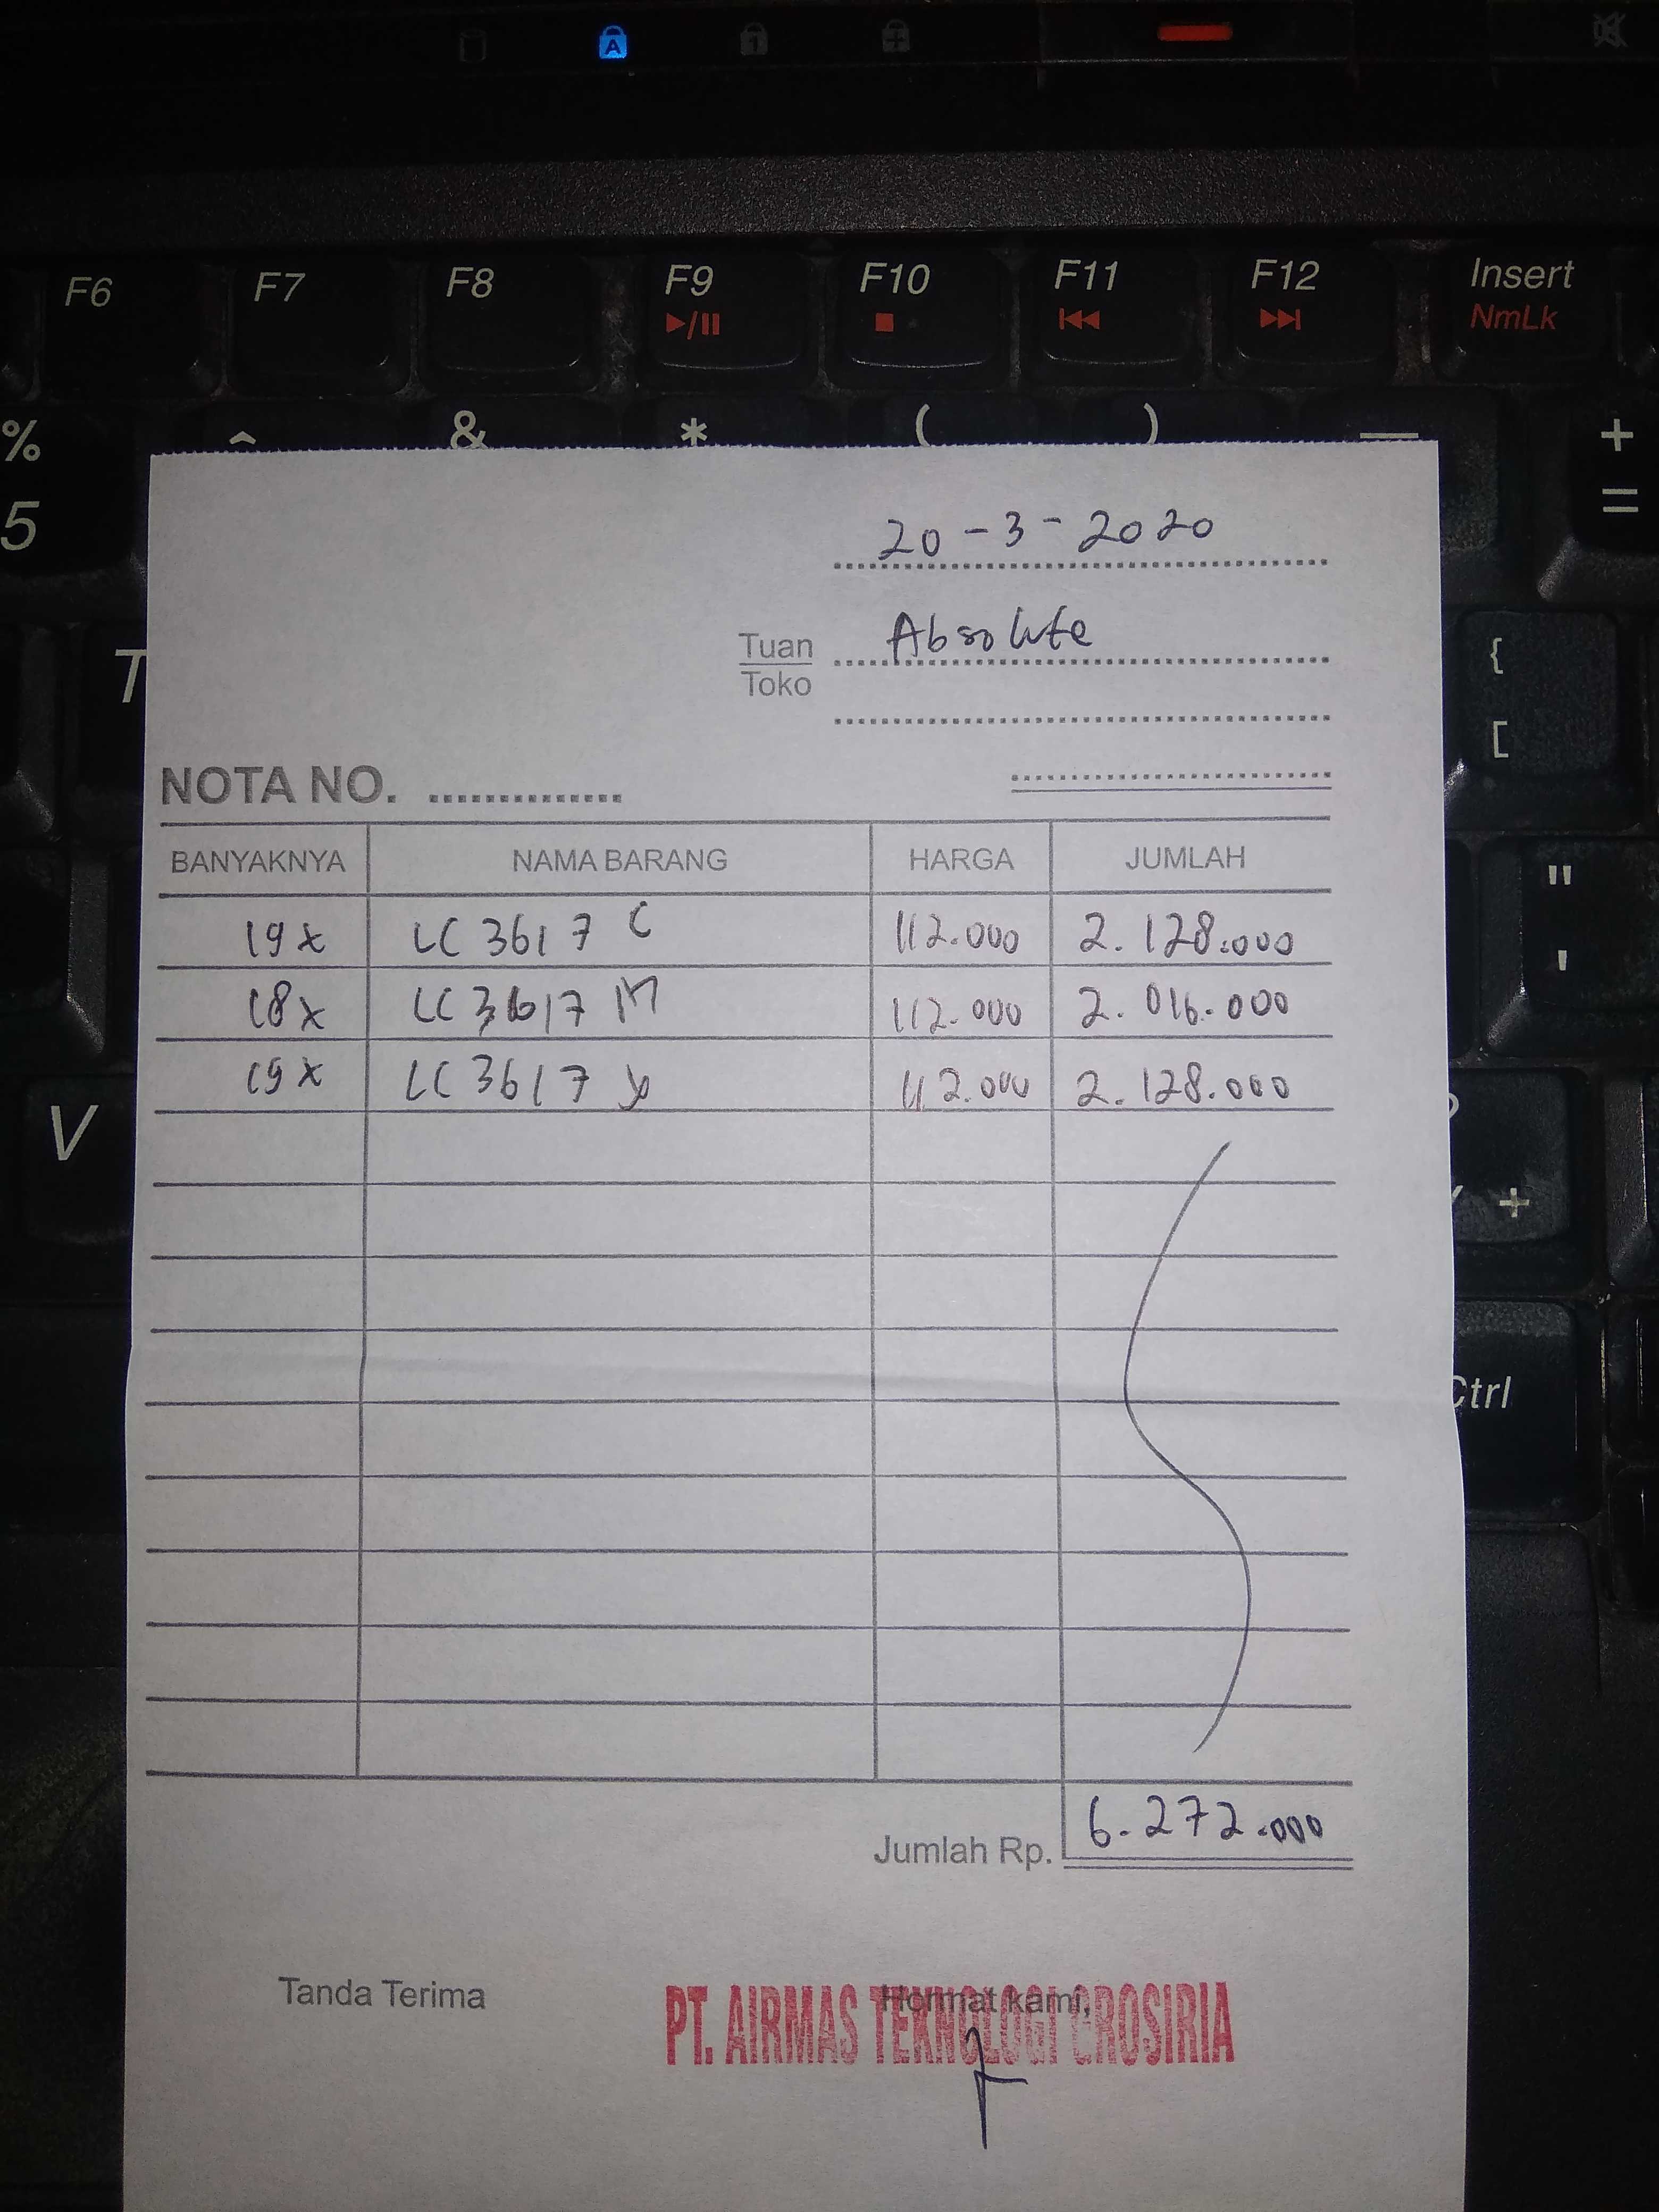 A 1
F6 F7 F8 F9 F10 F11 F12 Insert
NmLk
% ^ & * ( ) — +
5 =
20-3-2020
Tuan Absolute
Toko
T { [
NOTA NO.
BANYAKNYA NAMA BARANG HARGA JUMLAH
" '
19x LC 3617 C 112.000 2.128.000
18x LC 3617 M 112.000 2.016.000
19x LC 3617 Y 112.000 2.128.000
V
+
Ctrl
Jumlah Rp. 6.272.000
Tanda Terima Hormat kami,
PT. AIRMAS TEKNOLOGI GROSIRIA